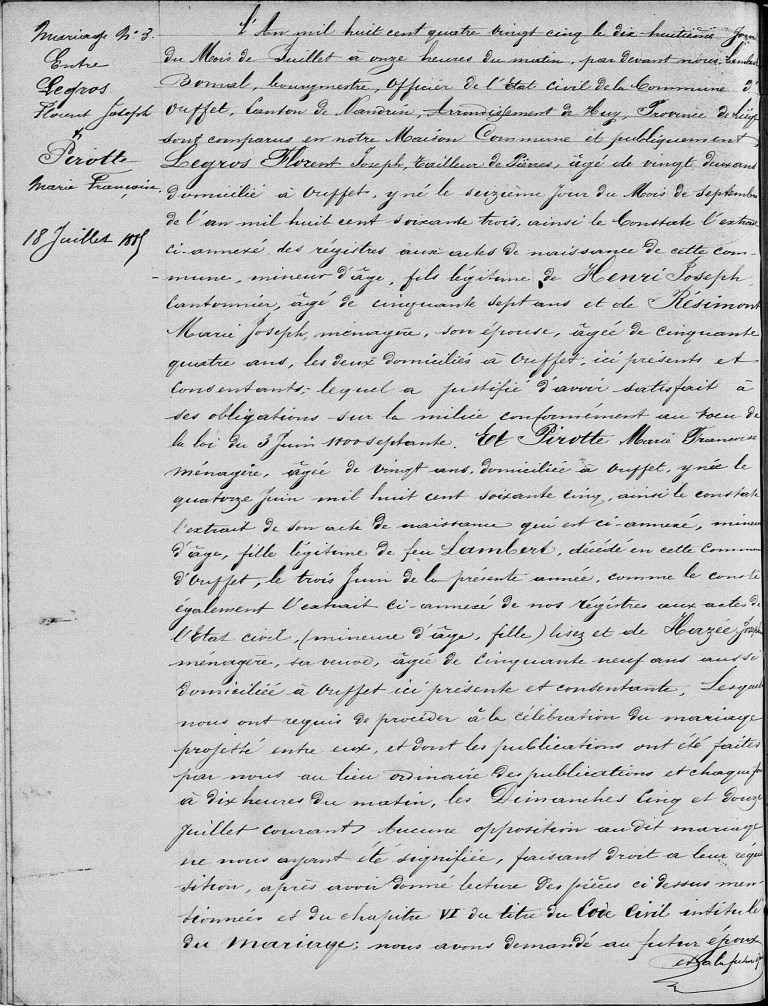 Mariage N° 3.
Entre
Legros
Florent Joseph
&
Pirotte
Marie Françoise.
18 Juillet 1885
L'An mil huit cent quatre vingt cinq le dix-huitième Jour
du Mois de Juillet à onze heures du matin, par devant nous
Bonval, bourgmestre, Officier de l'Etat civil de la Commune d'
Ouffet, Canton de Nandrin, Arrondissement de Huy, Province de Liège
sont comparus en notre Maison Commune et publiquement
Legros Florent Joseph, tailleur de Pierres, âgé de vingt deux ans
domicilié à Ouffet, y né le seizième Jour du Mois de Septembre
de l'an mil huit cent soixante trois, ainsi le Constate l'extrait
ci-annexé des régistres aux actes de naissance de cette com-
mune, mineur d'âge, fils légitime de Henri Joseph,
Cantonnier, âgé de cinquante sept ans et de Résimont
Marie Joseph, ménagère, son épouse, âgée de cinquante
quatre ans, les deux domiciliés à Ouffet, ici présents et
consentants; lequel a justifié d'avoir satisfait à
ses obligations sur la milice conformément au voeu de
la loi du 3 Juin 1800 septante. Et Pirotte Marie Françoise
ménagère, âgée de vingt ans, domiciliée à Ouffet, y née le
quatorze Juin mil huit cent soixante cinq, ainsi le constate
l'extrait de son acte de naissance qui est ci-annexé, mineure
d'âge, fille légitime de feu Lambert, décédé en cette Commune
d'Ouffet, le trois Juin de la présente année, comme le constate
également l'extrait ci-annexé de nos régistres aux actes de
l'Etat civil, (mineure d'âge, fille) lisez et de Hazée Joseph
ménagère, sa veuve, âgée de cinquante neuf ans aussi
domiciliée à Ouffet ici présente et consentante; Lesquels
nous ont requis de procéder à la célébration du mariage
projetté entre eux, et dont les publications ont été faites
par nous au lieu ordinaire des publications et chaque fois
à dix heures du matin, les Dimanches cinq et douze
Juillet courant. Aucune opposition audit mariage
ne nous ayant été signifiée, faisant droit a leur réqui-
sition, après avoir donné lecture des pièces ci dessus men-
tionnées et du chapitre VI du titre du Code Civil intitulé
du Mariage; nous avons demandé au futur époux
et à la future